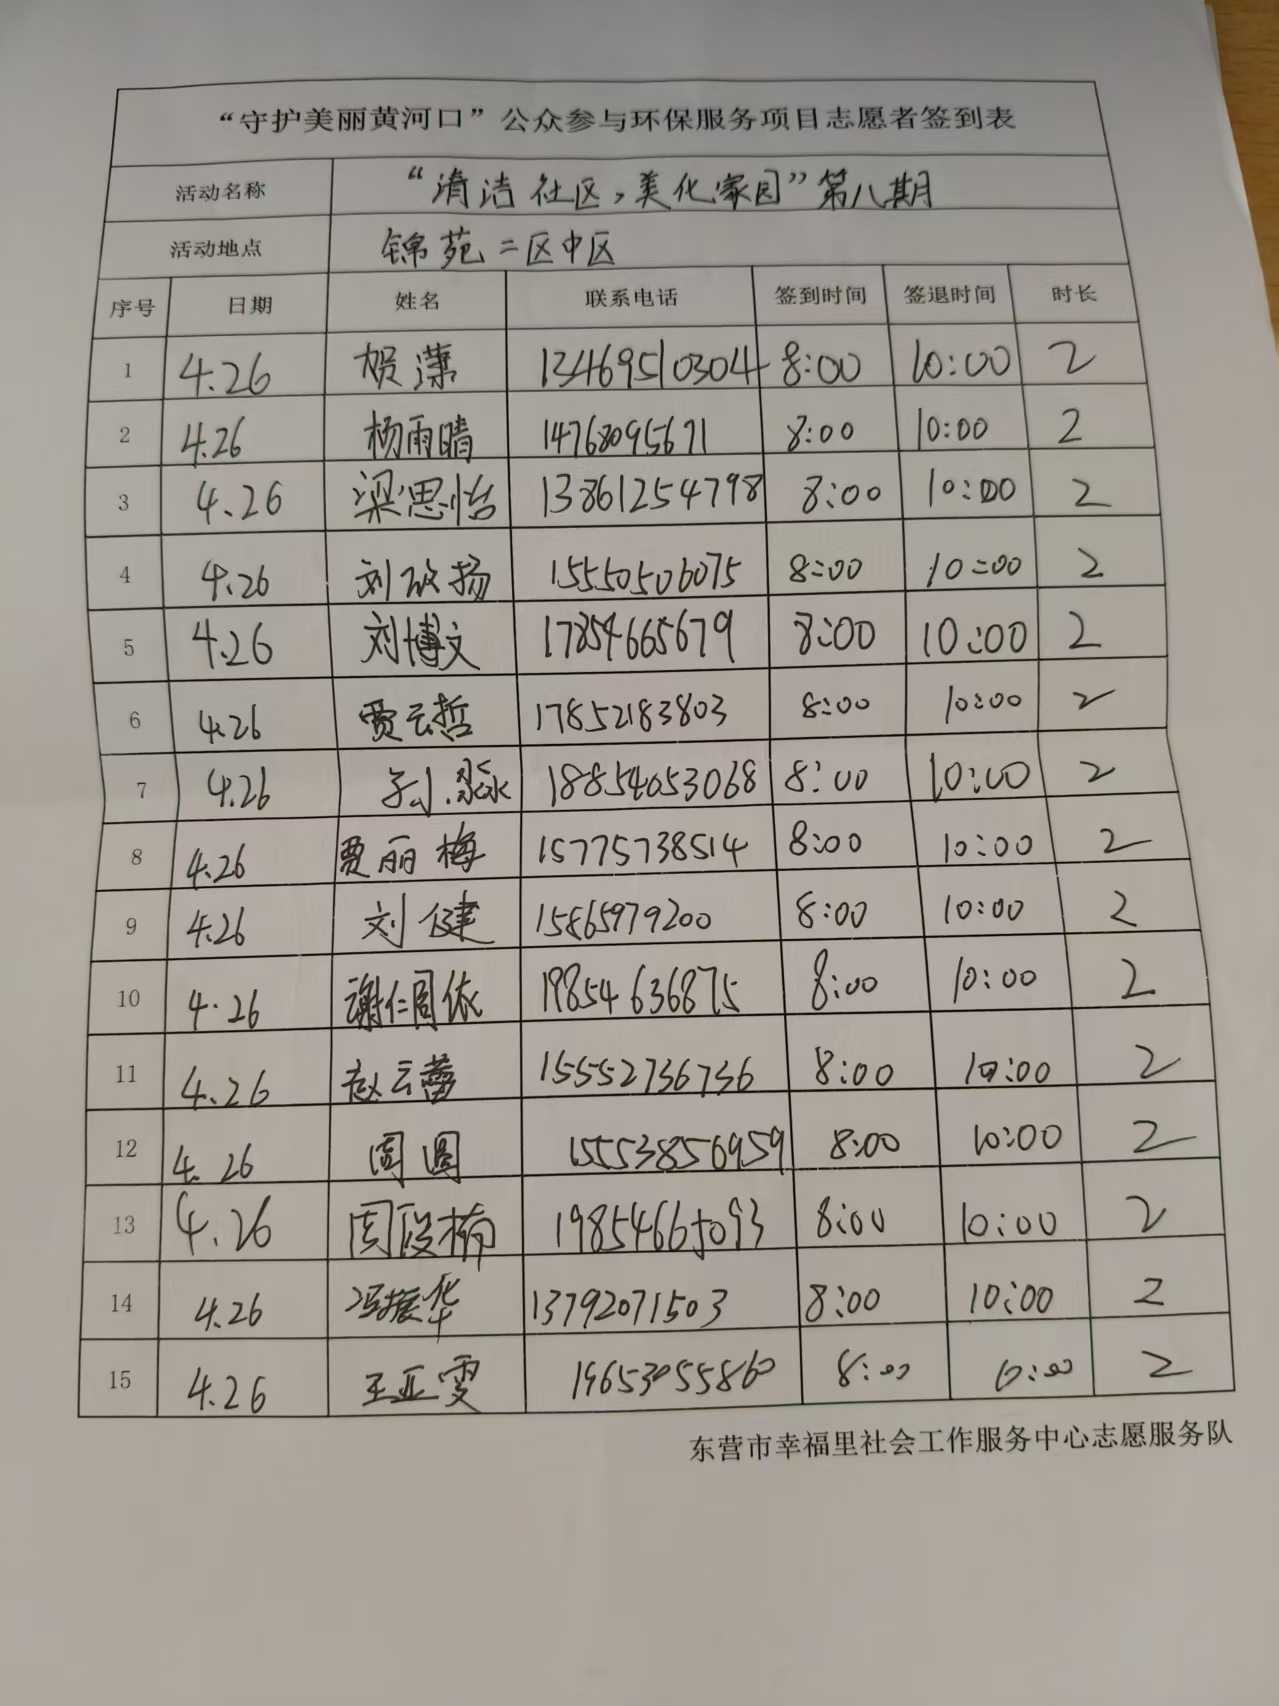 “守护美丽黄河口”公众参与环保服务项目志愿者签到表
活动名称 “清洁社区,美化家园”第八期
活动地点 锦苑二区中区
序号 日期 姓名 联系电话 签到时间 签退时间 时长
1 4.26 贺潇 13469510304 8:00 10:00 2
2 4.26 杨雨晴 14768095671 8:00 10:00 2
3 4.26 梁思怡 13861254798 8:00 10:00 2
4 4.26 刘 扬 15550506075 8:00 10:00 2
5 4.26 刘博文 17854665679 8:00 10:00 2
6 4.26 贾云哲 17852183803 8:00 10:00 2
7 4.26 孙淼 18854653068 8:00 10:00 2
8 4.26 贾丽梅 15775738514 8:00 10:00 2
9 4.26 刘健 15865979200 8:00 10:00 2
10 4.26 谢仁周依 19854636875 8:00 10:00 2
11 4.26 赵云蕾 15552736736 8:00 10:00 2
12 4.26 周圆 15553856959 8:00 10:00 2
13 4.26 周段楠 19854665093 8:00 10:00 2
14 4.26 冯振华 13792071503 8:00 10:00 2
15 4.26 王亚雯 19653055860 8:00 10:00 2
东营市幸福里社会工作服务中心志愿服务队